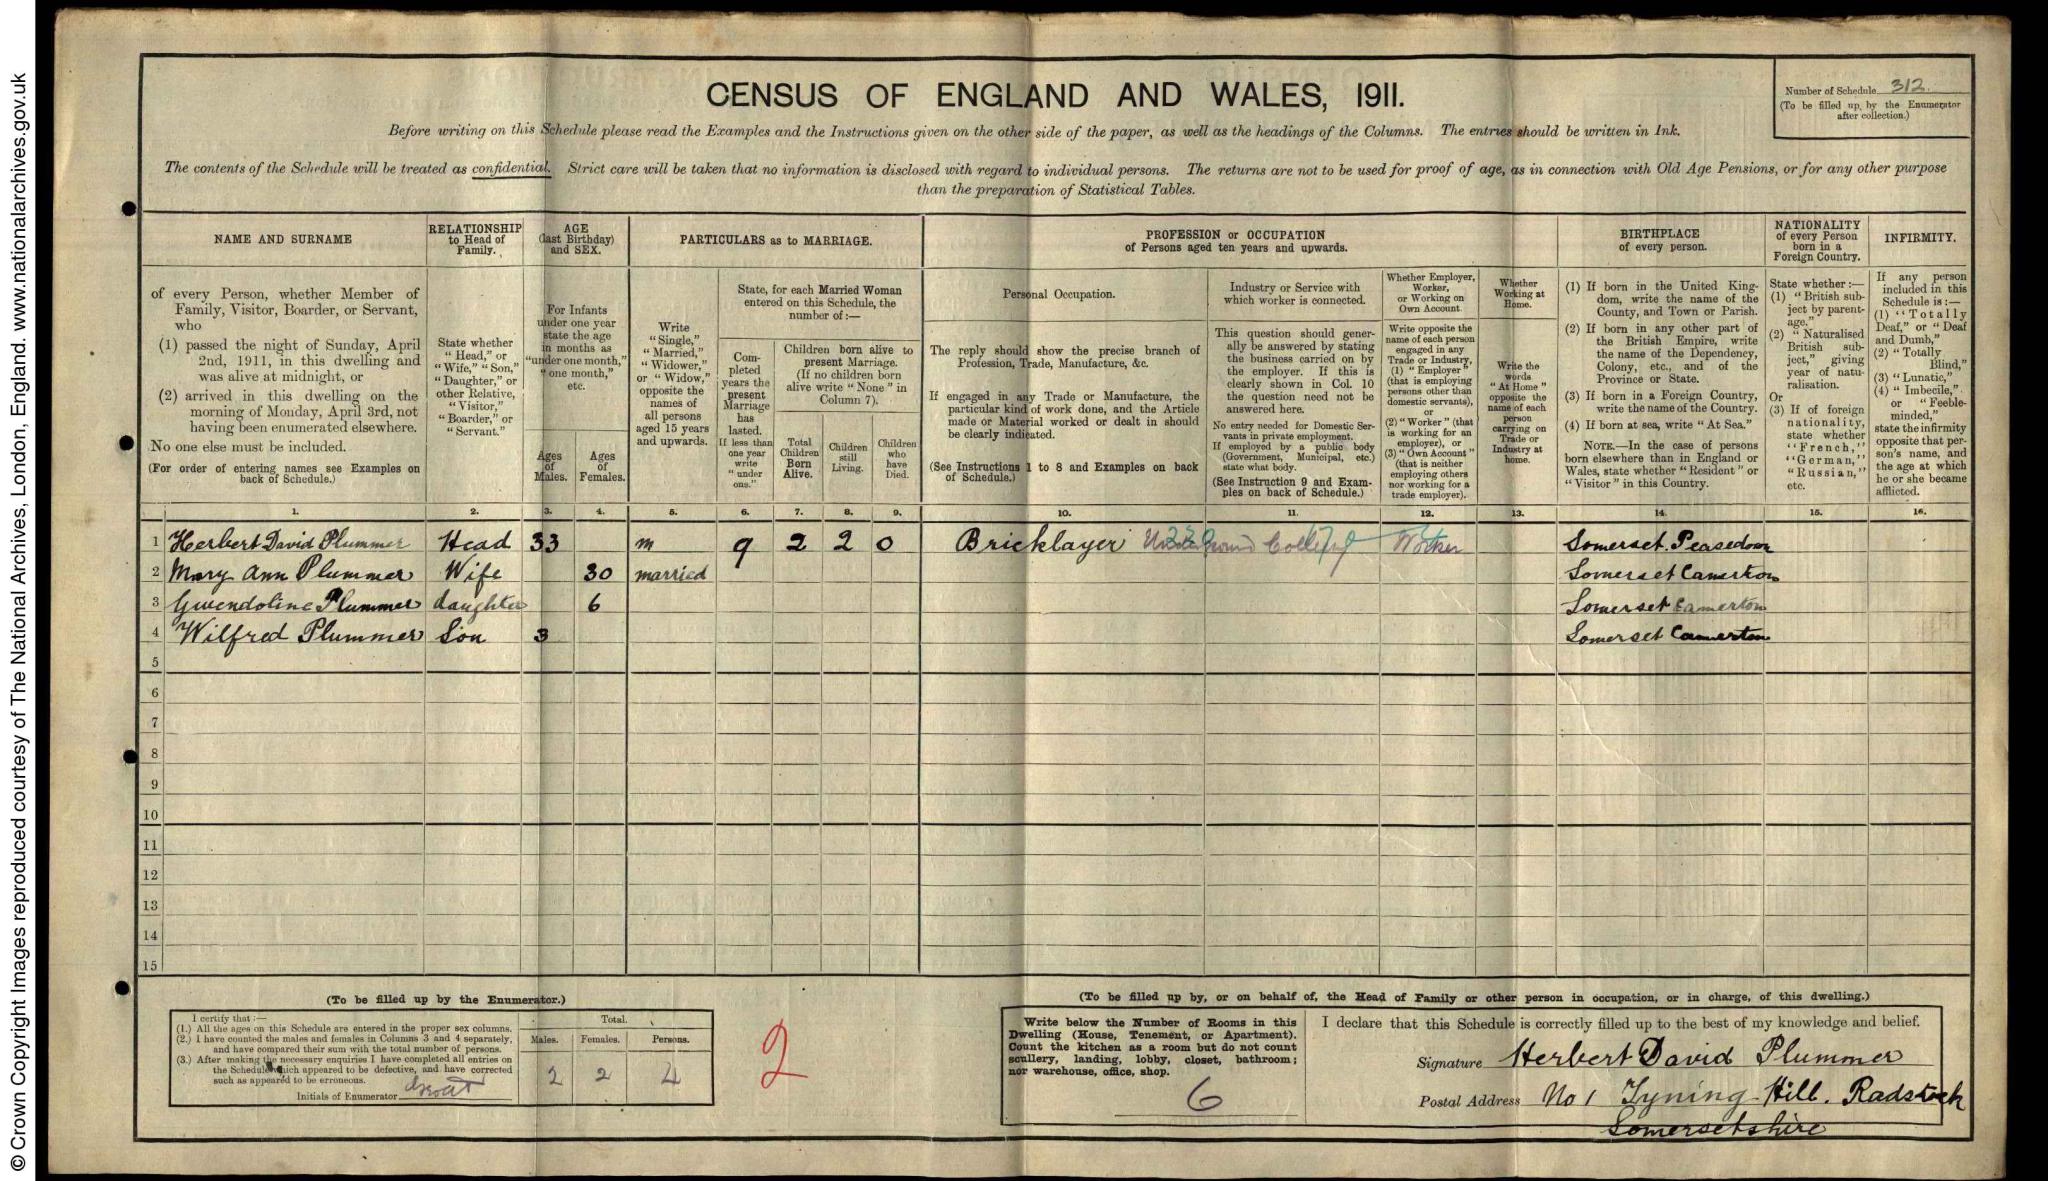 © Crown Copyright Images reproduced courtesy of The National Archives, London, England. www.nationalarchives.gov.uk
CENSUS OF ENGLAND AND WALES, 1911.
Number of Schedule 312.
(To be filled up by the Enumerator
after collection.)
Before writing on this Schedule please read the Examples and the Instructions given on the other side of the paper, as well as the headings of the Columns. The entries should be written in Ink.
The contents of the Schedule will be treated as confidential. Strict care will be taken that no information is disclosed with regard to individual persons. The returns are not to be used for proof of age, as in connection with Old Age Pensions, or for any other purpose
than the preparation of Statistical Tables.
NAME AND SURNAME
of every Person, whether Member of
Family, Visitor, Boarder, or Servant,
who
(1) passed the night of Sunday, April
2nd, 1911, in this dwelling and
was alive at midnight, or
(2) arrived in this dwelling on the
morning of Monday, April 3rd, not
having been enumerated elsewhere.
No one else must be included.
(For order of entering names see Examples on
back of Schedule.)
RELATIONSHIP
to Head of
Family.
State whether
"Head," or
"Wife," "Son,"
"Daughter," or
other Relative,
"Visitor,"
"Boarder," or
"Servant."
AGE
(last Birthday)
and SEX.
For Infants
under one year
state the age
in months as
"under one month,"
"one month,"
etc.
Ages
of
Males.
Ages
of
Females.
PARTICULARS as to MARRIAGE.
Write
"Single,"
"Married,"
"Widower,"
or "Widow,"
opposite the
names of
all persons
aged 15 years
and upwards.
State, for each Married Woman
entered on this Schedule, the
number of:—
Com-
pleted
years the
present
Marriage
has
lasted.
If less than
one year
write
"under
one."
Children born alive to
present Marriage.
(If no children born
alive write "None" in
Column 7).
Total
Children
Born
Alive.
Children
still
Living.
Children
who
have
Died.
PROFESSION or OCCUPATION
of Persons aged ten years and upwards.
Personal Occupation.
The reply should show the precise branch of
Profession, Trade, Manufacture, &c.
If engaged in any Trade or Manufacture, the
particular kind of work done, and the Article
made or Material worked or dealt in should
be clearly indicated.
(See Instructions 1 to 8 and Examples on back
of Schedule.)
Industry or Service with
which worker is connected.
This question should gener-
ally be answered by stating
the business carried on by
the employer. If this is
clearly shown in Col. 10
the question need not be
answered here.
No entry needed for Domestic Ser-
vants in private employment.
If employed by a public body
(Government, Municipal, etc.)
state what body.
(See Instruction 9 and Exam-
ples on back of Schedule.)
Whether Employer,
Worker,
or Working on
Own Account.
Write opposite the
name of each person
engaged in any
Trade or Industry,
(1) "Employer"
(that is employing
persons other than
domestic servants),
or
(2) "Worker" (that
is working for an
employer), or
(3) "Own Account"
(that is neither
employing others
nor working for a
trade employer).
Whether
Working at
Home.
Write the
words
"At Home"
opposite the
name of each
person
carrying on
Trade or
Industry at
home.
BIRTHPLACE
of every person.
(1) If born in the United King-
dom, write the name of the
County, and Town or Parish.
(2) If born in any other part of
the British Empire, write
the name of the Dependency,
Colony, etc., and of the
Province or State.
(3) If born in a Foreign Country,
write the name of the Country.
(4) If born at sea, write "At Sea."
NOTE.—In the case of persons
born elsewhere than in England or
Wales, state whether "Resident" or
"Visitor" in this Country.
NATIONALITY
of every Person
born in a
Foreign Country.
State whether:—
(1) "British sub-
ject by parent-
age,"
(2) "Naturalised
British sub-
ject," giving
year of natu-
ralisation.
Or
(3) If of foreign
nationality,
state whether
"French,"
"German,"
"Russian,"
etc.
INFIRMITY.
If any person
included in this
Schedule is:—
(1) "Totally
Deaf," or "Deaf
and Dumb,"
(2) "Totally
Blind,"
(3) "Lunatic,"
(4) "Imbecile,"
or "Feeble-
minded,"
state the infirmity
opposite that per-
son's name, and
the age at which
he or she became
afflicted.
1. 2. 3. 4. 5. 6. 7. 8. 9. 10. 11. 12. 13. 14. 15. 16.
1 Herbert David Plummer Head 33 m 9 2 2 0 Bricklayer Under Ground Colliery Worker Somerset Peasedown
2 Mary Ann Plummer Wife 30 married Somerset Camerton
3 Gwendoline Plummer daughter 6 Somerset Camerton
4 Wilfred Plummer Son 3 Somerset Camerton
5
6
7
8
9
10
11
12
13
14
15
(To be filled up by the Enumerator.)
I certify that:—
(1.) All the ages on this Schedule are entered in the proper sex columns.
(2.) I have counted the males and females in Columns 3 and 4 separately,
and have compared their sum with the total number of persons.
(3.) After making the necessary enquiries I have completed all entries on
the Schedule which appeared to be defective, and have corrected
such as appeared to be erroneous.
Initials of Enumerator
Total.
Males. Females. Persons.
2 2 4
2
(To be filled up by, or on behalf of, the Head of Family or other person in occupation, or in charge, of this dwelling.)
Write below the Number of Rooms in this
Dwelling (House, Tenement, or Apartment).
Count the kitchen as a room but do not count
scullery, landing, lobby, closet, bathroom;
nor warehouse, office, shop.
6
I declare that this Schedule is correctly filled up to the best of my knowledge and belief.
Signature Herbert David Plummer
Postal Address No 1 Tyning Hill. Radstock
Somersetshire